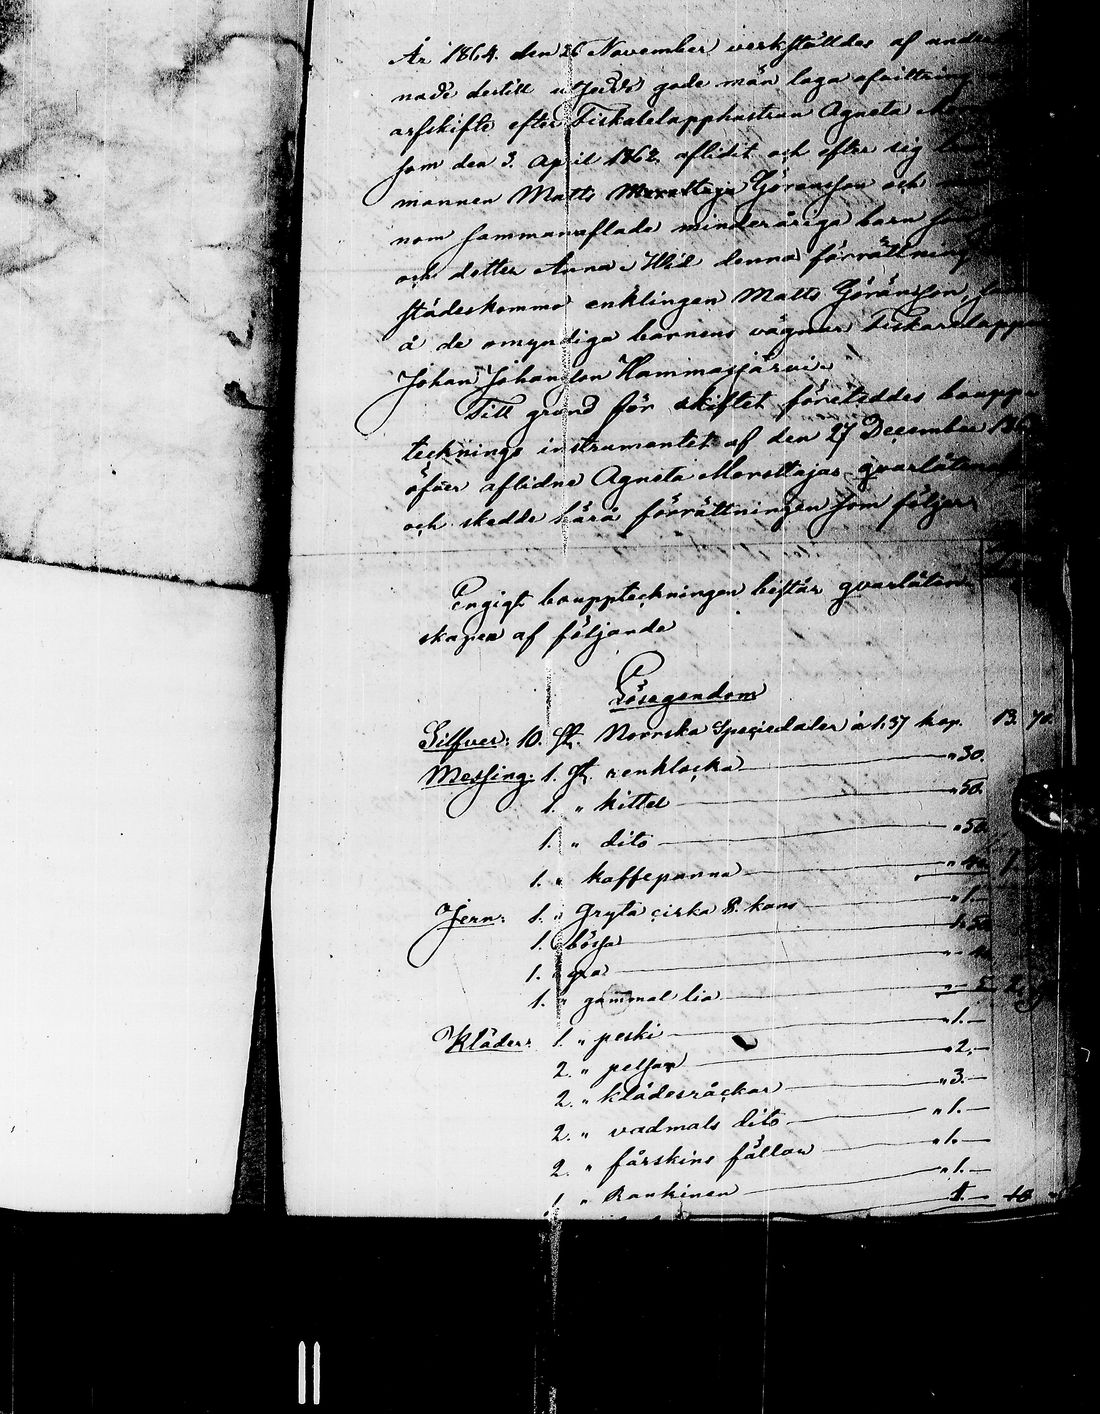 År 1864. den 26 November verkstäldes af under
nade dertill utsedde gode män laga afvittring
arfskifte efter Fiskarelapphustrun Agneta
som den 3. April 1862 aflidit och efter sig
mannen Matts Morottaja Göransson och
nom sammanaflade minderåriga barn
och dotter Anna. Wid denna förrättning
städeskommo enklingen Matts Göransson,
å de omyndiga barnens vägnar Fiskarelappen
Johan Johansson Hammasjärvi.
Till grund för skiftet företeddes bouppe
tecknings instrumentet af den 27 December
öfver aflidne Agneta Morottajas qvarlåtenskap
och skedde härå förrättningen som följer
Enligt bouppteckningen består qvarlåten
skapen af följande
Lösegendom
Silfver: 10. st. Norrska Speciedaler à 1.37 kop. 13. 70.
Messing: 1. st. renklocka " 30.
1. " kittel " 50.
1. " dito " 50.
1. " kaffepanna
Jern: 1. " Gryta cirka 8. kans " 1.—
1. " bössa 1. 50
1. "
1. " gammal lia
Kläder: 1. " peski " 1.—
2. " pelsar " 2.—
2. " klädesräckar " 3.—
2. " vadmals dito " 1.—
2. " fårskins fällar " 1.—
1. " Rankinen " 1.—